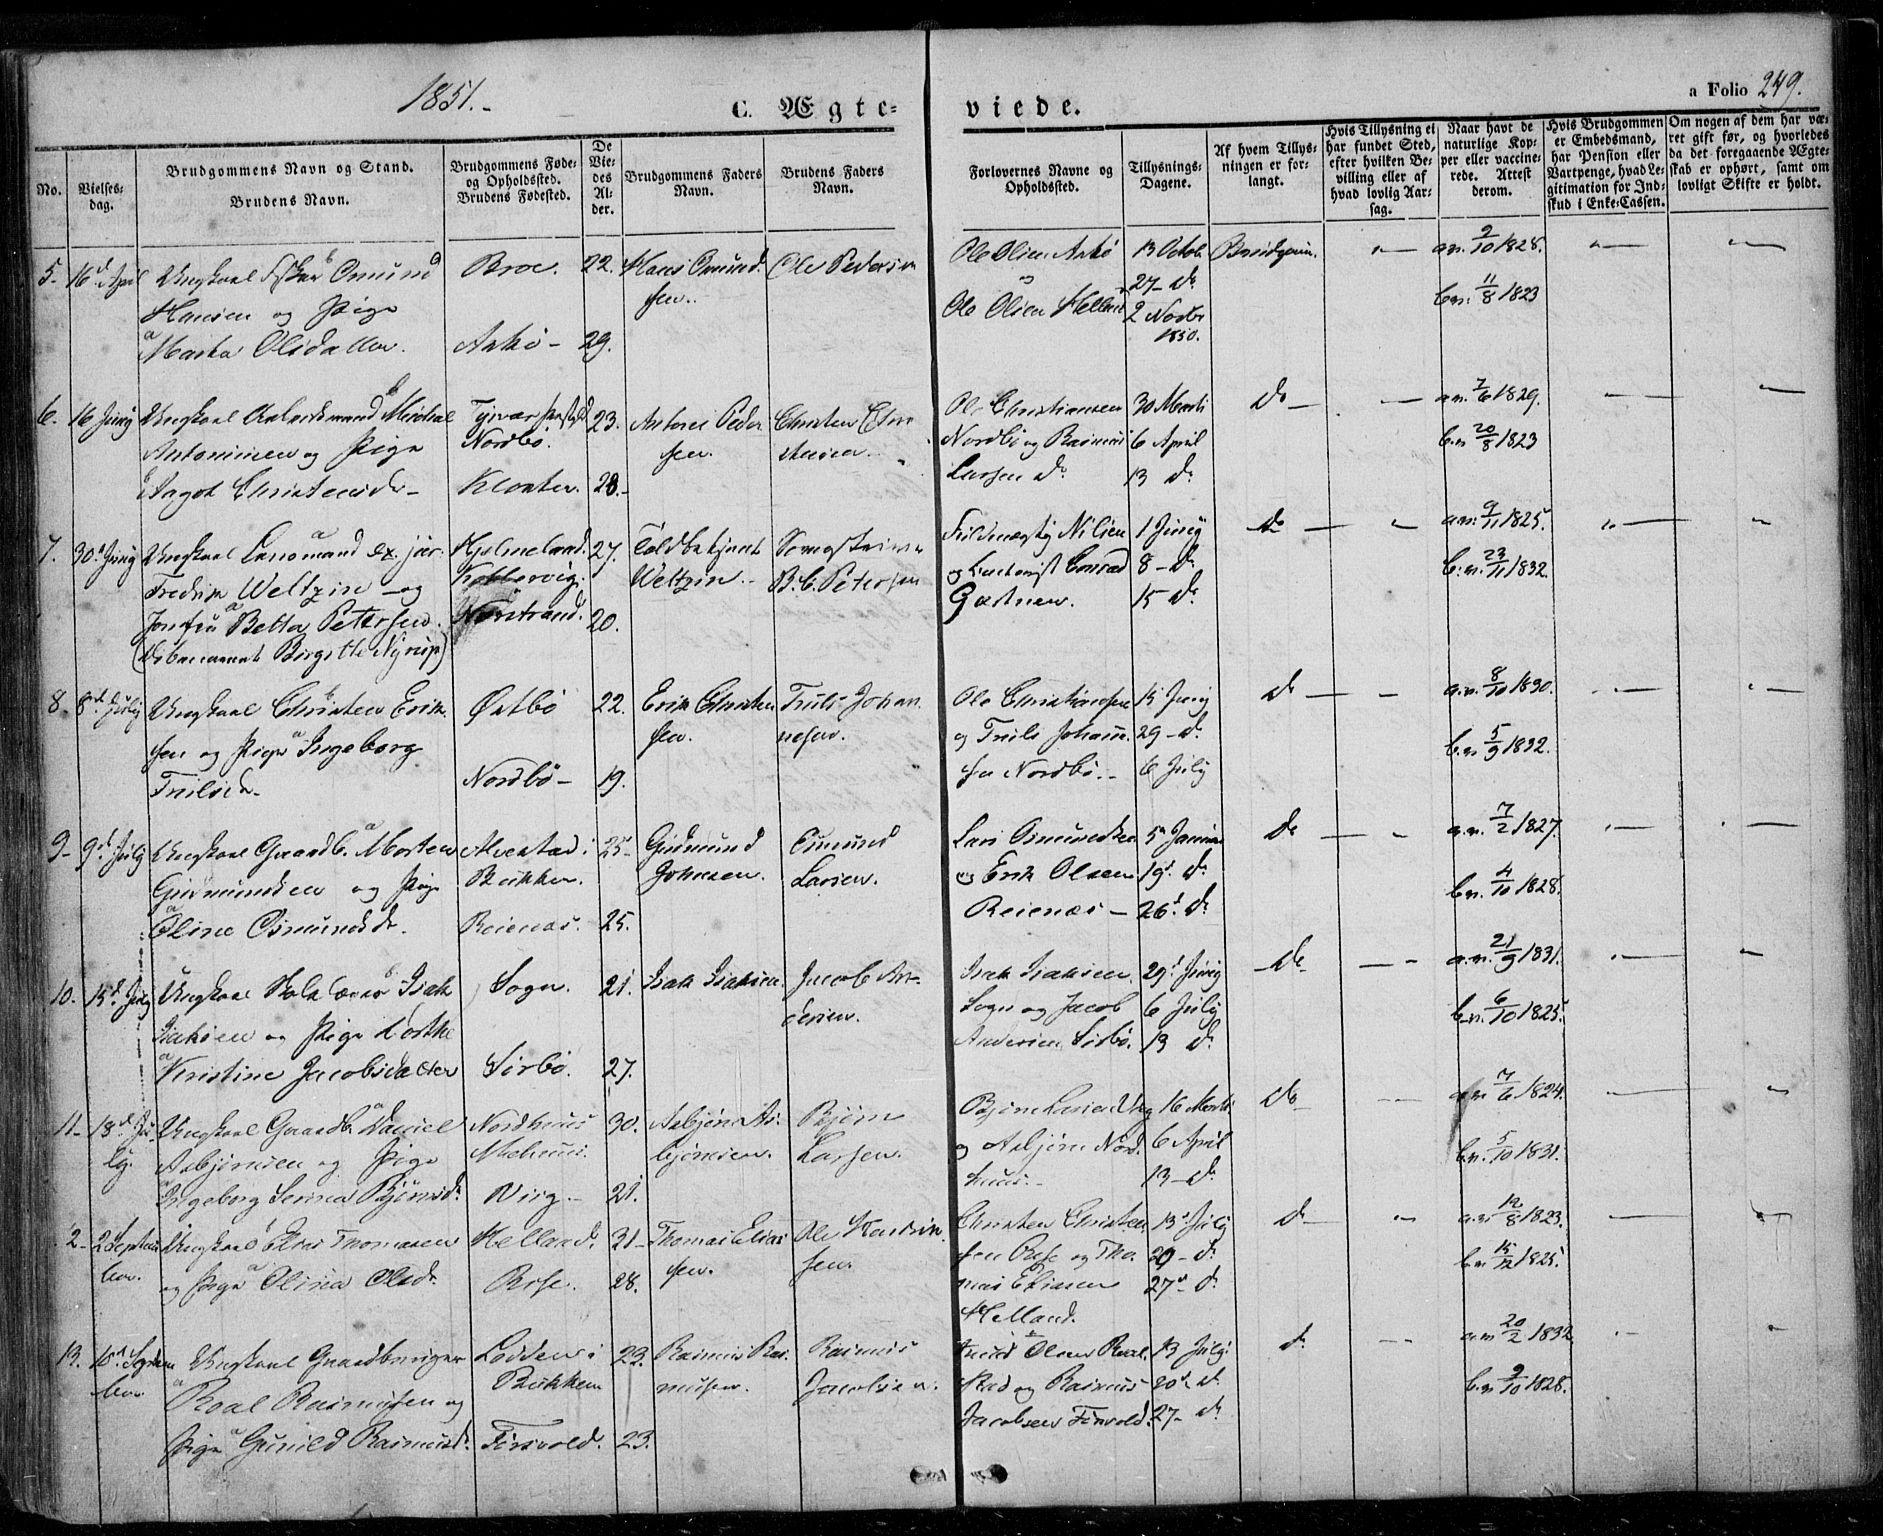 1851.
C. Ægte-
viede.
a Folio 249.
No.
Vielses-
dag.
Brudgommens Navn og Stand.
Brudens Navn.
Brudgommens Føde-
og Opholdssted.
Brudens Fødested.
De
Vie-
des
Al-
der.
Brudgommens Faders
Navn.
Brudens Faders
Navn.
Forlovernes Navne og
Opholdssted.
Tillysnings-
Dagene.
Af hvem Tillys-
ningen er for-
langt.
Hvis Tillysning ei
har fundet Sted,
efter hvilken Be-
villing eller af
hvad lovlig Aar-
sag.
Naar havt de
naturlige Kop-
per eller vaccine-
rede. Attest
derom.
Hvis Brudgommen
er Embedsmand,
har Pension eller
Vartpenge, hvad Le-
gitimation for Ind-
skud i Enke-Cassen.
Om nogen af dem har væ-
ret gift før, og hvorledes
da det foregaaende Ægte-
skab er ophørt, samt om
lovligt Skifte er holdt.
5. 16d April Ungkarl Omund
Hansen og Pige
Marta Olsdatter.
Broe. 22.
Askø - 29.
Hans Omund-
sen.
Ole Pedersen
Ole Olsen Askø
og
Ole Olsen Helland
13 Octob
27 - do
2 Novbr
1850.
Brudgom.
a.v. 9/10 1828.
b.v. 11/8 1823
6. 16 Juny Ungkarl Michal
Antonisen og Pige
Aagot Christensd -
Nordbø. 23.
Kloster. 28.
Antoni Peder
sen.
Christen Chri
stensen.
Ole Christiansen
Nordbø og Rasmus
Larsen do
30 Marti
6 April
13 do
do
a.v. 7/6 1829.
b.v. 20/8 1823
7. 30d Juny Ungkarl ex. jur.
Fredrik Weltzin - og
Betta Petersen.
Birgitte Nyrup)
Hjelmeland. 27.
Kobbervig.
Nærstrand. 20.
Weltzin.
B. C. Petersen
Nilsen
og Conrad
Gartner.
1 Juny
8 - do
15 do
do
a.v. 9/11 1825.
b.v. 23/11 1832.
8. 8d July Ungkarl Christen Erik-
sen og Pige Ingeborg
Trulsd.
Østbø 22.
Nordbø - 19.
Erik Christen
sen.
Truls Johan
nesen.
Ole Christiansen
og Truls Johann-
sen Nordbø.
15 Juny
29 - do
6 July
do
a.v. 8/10 1830.
b.v. 5/9 1832.
9. 9d July Ungkarl Gaardb. Morten
Gudmundsen og Pige
Oline Osmundsd.
i 25
Bukken.
Reienæs. 25.
Gudmund
Johnsen.
Osmund
Larsen.
Lars Osmundsen
og Erik Olsen
Reienæs -
5d Januar
19d do
26d do
do
a.v. 7/2 1827.
b.v. 4/10 1828.
10. 15d July Ungkarl Isak
Isaksen og Pige Dorthe
Kristine Jacobsdatter
Sogn. 21.
Sørbø. 27.
Isak Isaksen.
Jacob An-
dersen.
Isak Isaksen
Sogn og Jacob
Andersen Sørbø.
29d Juny
6 July
13 do
do
a.v. 21/9 1831.
b.v. 6/10 1825.
11. 18d Ju-
ly. Ungkarl Gaardb. Daniel
Asbjørnsen og Pige
Ingeborg Serina Bjørnsd.
Nordhuus 30.
Viig. 21.
Asbjørn As-
bjørnsen.
Bjørn
Larsen.
Bjørn Larsen Viig
og Asbjørn Nord-
huus.
16 Marti
6 April
13 - do
do
a.v. 7/6 1824.
b.v. 5/10 1831.
12. 2 Septem
ber. Ungkarl Elias Thomasen
og Pige Olina Olsd.
Helland. 31
28.
Thomas Elias
sen.
Ole
sen.
Christen Christen
sen og Tho-
mas Eliasen
Helland.
13d July
20 - do
27d do
do
a.v. 12/8 1823.
b.v. 15/12 1825.
13. 10d Septem
ber Ungkarl Gaardbruger
Roal Rasmussen og
Pige Gunild Rasmusd.
Lodden i 23.
Bukken
23.
Rasmus Ras-
musen.
Rasmus
Jacobsen.
Olsen
og Rasmus
Jacobsen
13 July
20d do
27 - do
do
a.v. 20/2 1832
b.v. 9/10 1828.